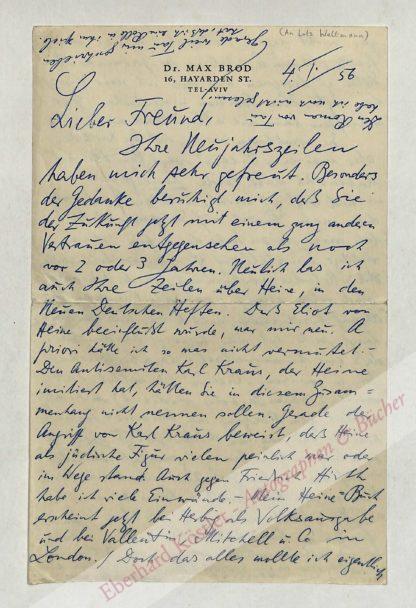 (An Lutz Weltmann)
Dr. MAX BROD
16, HAYARDEN ST.
TEL-AVIV
4. I. 56
Den Roman von Tau
habe ich noch nicht gelesen!
Gerade weil Tau mir geschrieben
hat, daß ich eine Rolle
Lieber Freund,
Ihre Neujahrszeilen
haben mich sehr gefreut. Besonders
der Gedanke beruhigt mich, daß Sie
der Zukunft jetzt mit einem ganz anderen
Vertrauen entgegensehen als noch
vor 2 oder 3 Jahren. Neulich las ich
auch Ihre Zeilen über Heine, in den
Neuen Deutschen Heften. Daß Eliot von
Heine beeinflußt wurde, war mir neu. A
priori hätte ich so was nicht vermutet. –
Den Antisemiten Karl Kraus, der Heine
imitiert hat, hätten Sie in diesem Zusam=
menhang nicht nennen sollen. Gerade der
Angriff von Karl Kraus beweist, daß Heine
als jüdische Figur vielen peinlich war oder
im Wege stand. Auch gegen Friedrich Hirth
habe ich viele Einwände. – Mein Heine-Buch
erscheint jetzt bei Herbig als Volksausgabe
und bei Vallentin – Mitchell u. Co in
London. / Doch das alles wollte ich eigentlich
Eberhard Köstler - Autographen & Bücher